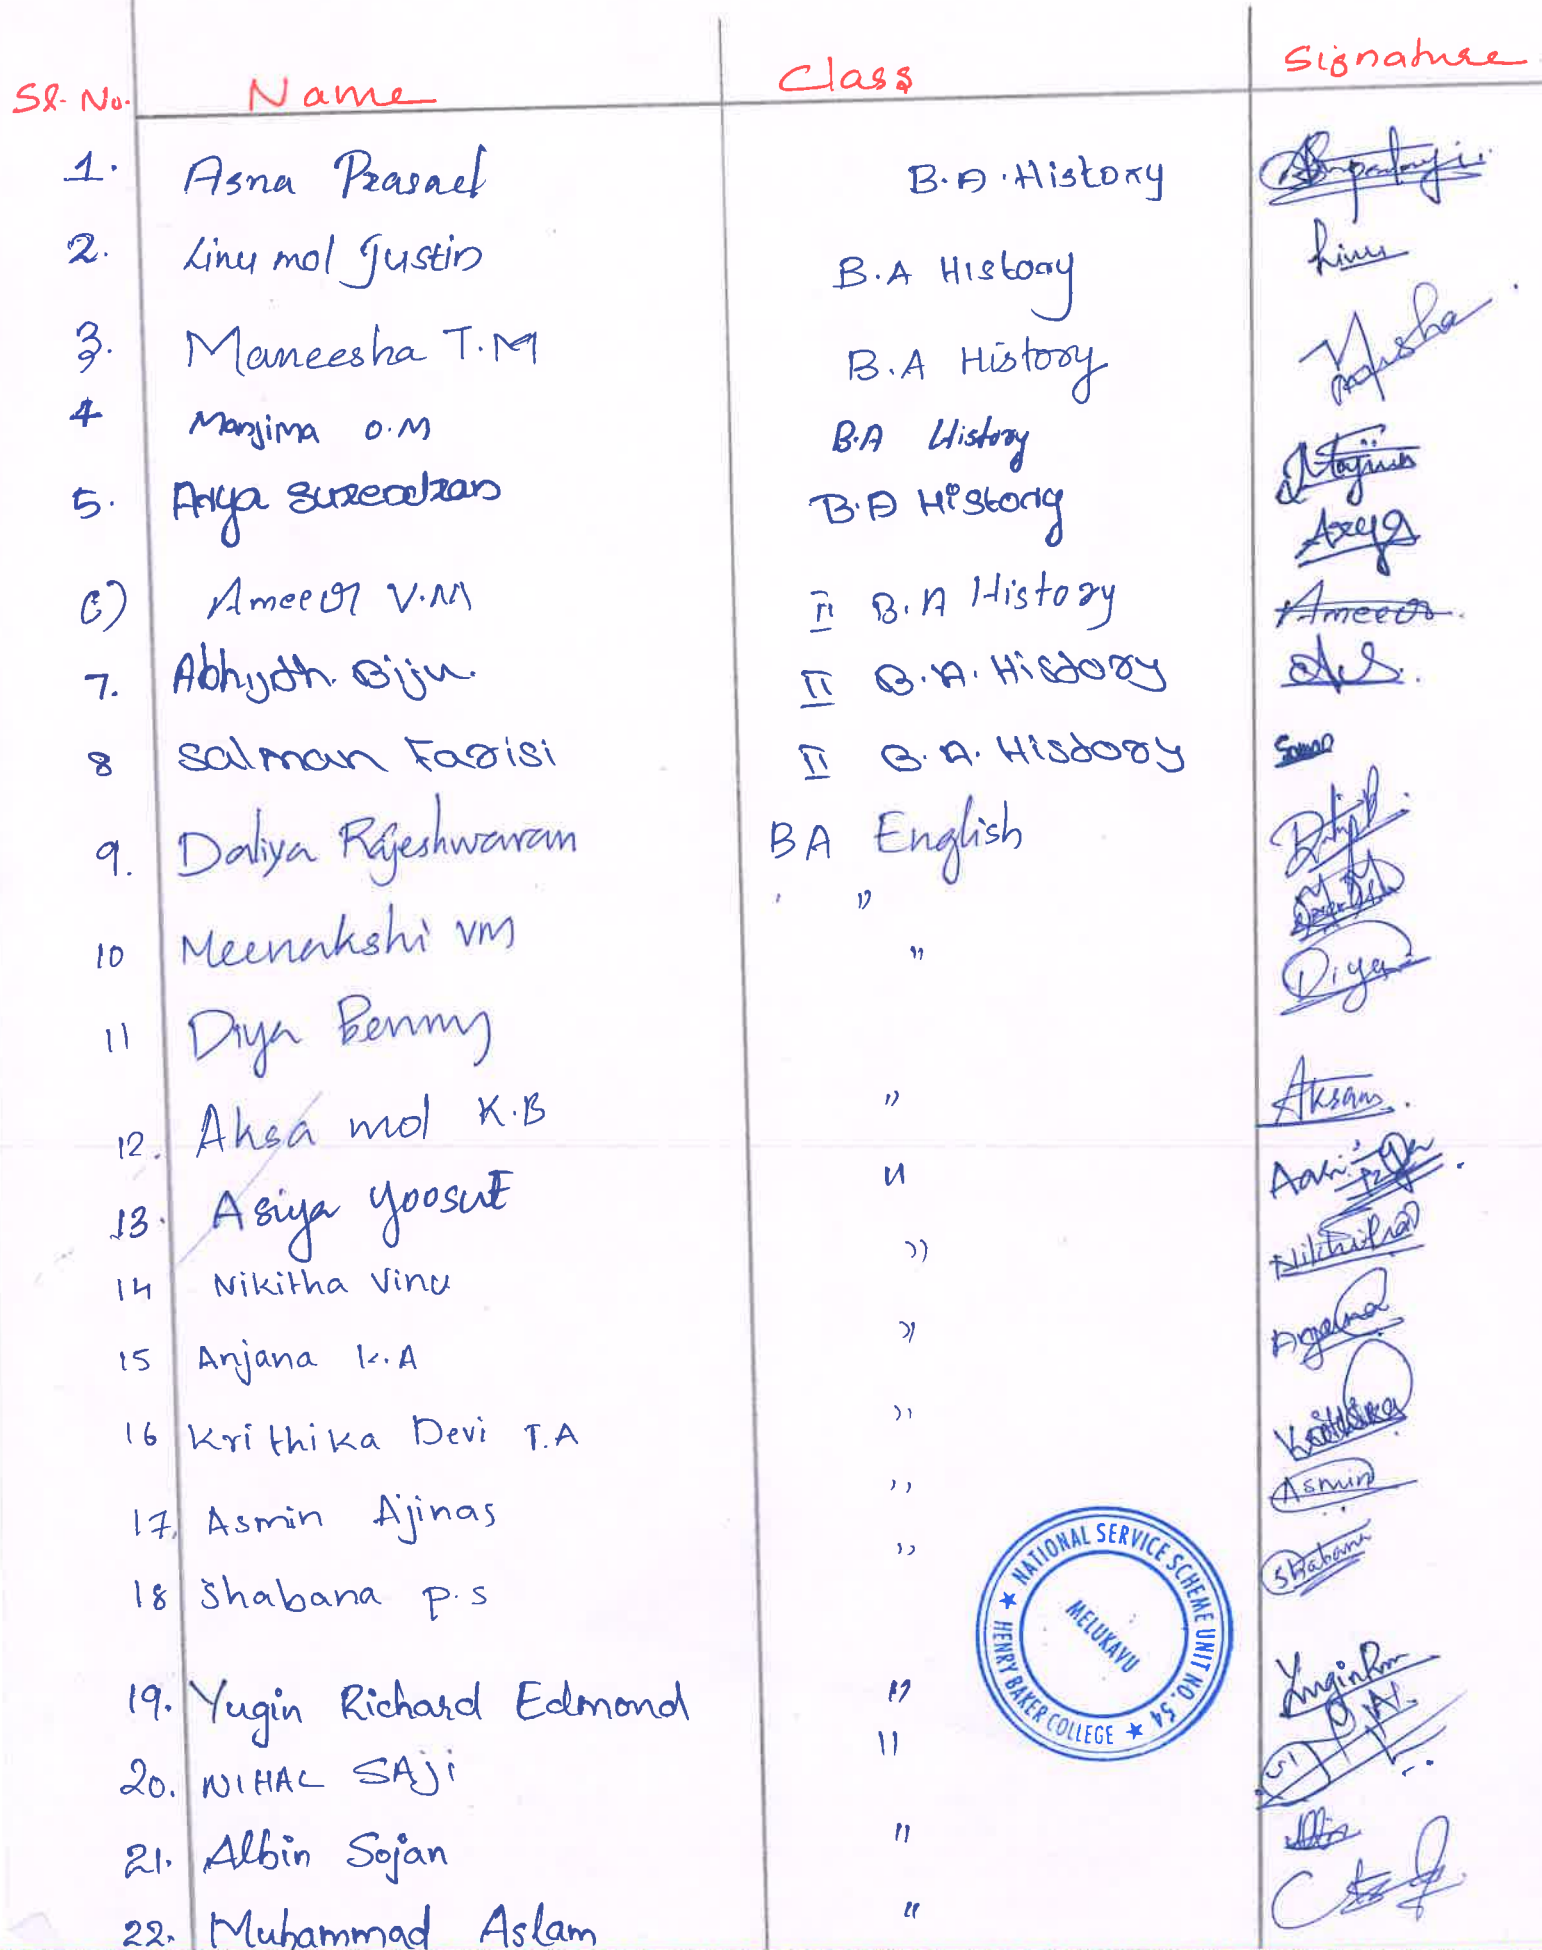 Sl. No. Name Class Signature
1. Asna Prasad B.A. History
2. Linu mol Justin B.A History Linu
3. Maneesha T.M B.A History
4 Manjima O.M B.A History
5. Arya Surendran B.A History Arya
6) Ameer V.M II B.A History Ameer.
7. Abhijith. Biju. II B.A. History
8 Salman Farisi II B.A. History
9. Daliya Rajeshwaran BA English
10 Meenakshi VM "
11 Diya Benny " Diya
12. Aksa mol K.B " Aksam.
13. Asiya Yoosuf "
14 Nikitha Vinu " Nikitha
15 Anjana K.A " Anjana
16 Krithika Devi T.A " Krithika
17. Asmin Ajinas " Asmin
18 Shabana P.S " Shabana
19. Yugin Richard Edmond "
20. NIHAL SAji "
21. Albin Sojan " Albin
22. Muhammad Aslam "
NATIONAL SERVICE SCHEME UNIT NO. 54
HENRY BAKER COLLEGE
MELUKAVU